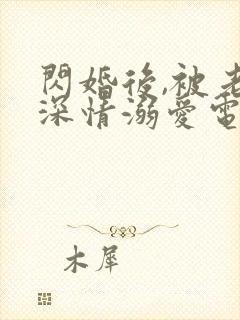 閃婚後,被老
深情溺愛電
木犀